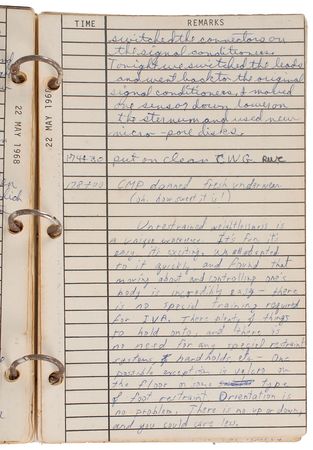 TIME REMARKS
switched the connectors on
the signal conditioners.
Tonight we switched the leads
and went back to the original
signal conditioners, & moved
the sensor down lower on
the sternum and used new
micro-pore disks.
22 MAY 1968
22 MAY 196
put on clean CWG. RWC
CMP donned fresh underwear
(oh, how sweet it is!)
Unrestrained weightlessness is
a unique experience. It's fun, its
easy, its exciting. We all adapted
to it quickly and found that
moving about and controlling one's
body is incredibly easy - there
is no special training required
for IVA. There plenty of things
to hold onto, and there is
no need for any special restraint
systems, handholds, etc - One
possible exception is velcro on
the floor or some type
of foot restraint Orientation is
no problem. There is no up or down,
and you could care less.